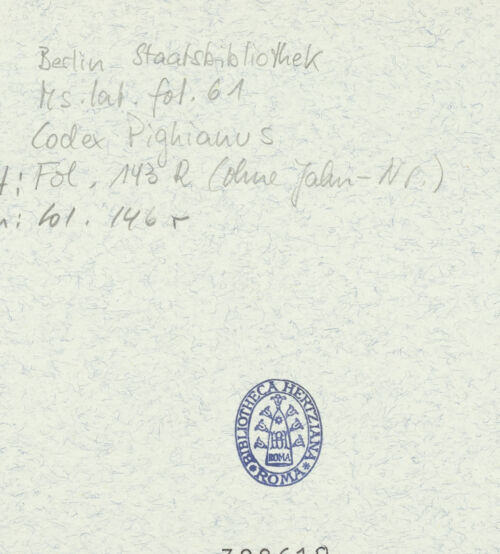 Berlin Staatsbibliothek
Ms. lat. fol. 61
Codex Pighianus
Fol. 143 R (ohne Jahn-Nr.)
fol. 146 r
BIBLIOTHECA HERTZIANA
ROMA
ROMA